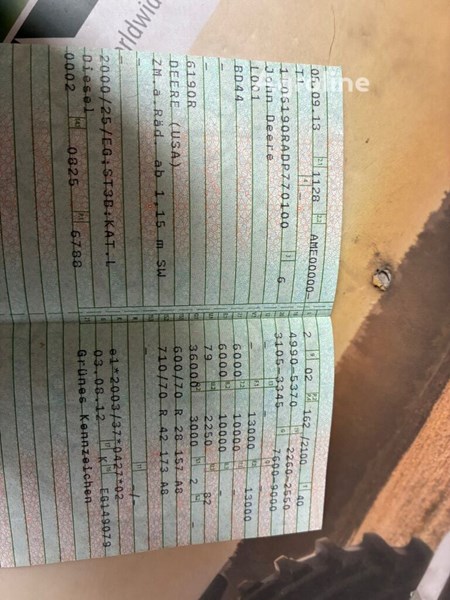 09.13 1128 AME00000-
T1 -
6
John Deere
LD01
BD44
-
6190R
DEERE (USA)
ZM.a.Räd. ab 1,15 m SW
-
2000/25/EG;ST3B;KAT.L
Diesel
0002 0825 6788
2 02 162 /2100 40
4990-5370 2260-2550
3105-3345 7600-9000
-
- 13000 13000
6000 10000 -
6000 10000 -
79 2250 82
36000 3000 2 -
600/70 R 28 157 A8
710/70 R 42 173 A8
- -/-
e1*2003/37*0427*02
03.08.12 K EG149079
Grünes Kennzeichen